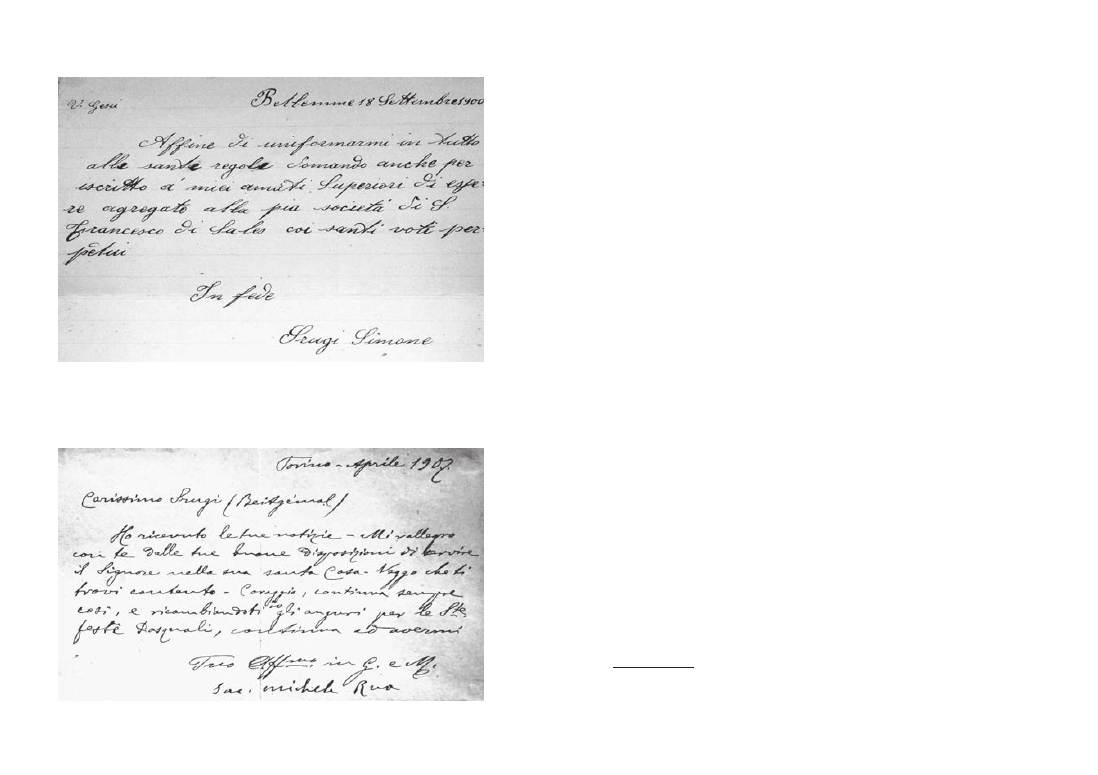 V. Gesù
Betlemme 18 Settembre 1900
Affine di uniformarmi in tutto
alle sante regole domando anche per
iscritto a' miei amati Superiori di esse-
re agregato alla pia società di S.
Francesco di Sales coi santi voti per-
petui
In fede
Srugi Simone
Torino - Aprile 1907.
Carissimo Srugi (Beitgemal)
Ho ricevuto le tue notizie - Mi rallegro
con te delle tue buone disposizioni di servire
il Signore nella sua santa Casa - Veggo che ti
trovi contento - Coraggio, continua sempre
così, e ricambiandoti gli auguri per le Ste.
feste Pasquali, continua ad avermi
Tuo Aff.mo in G. e M.
Sac. Michele Rua